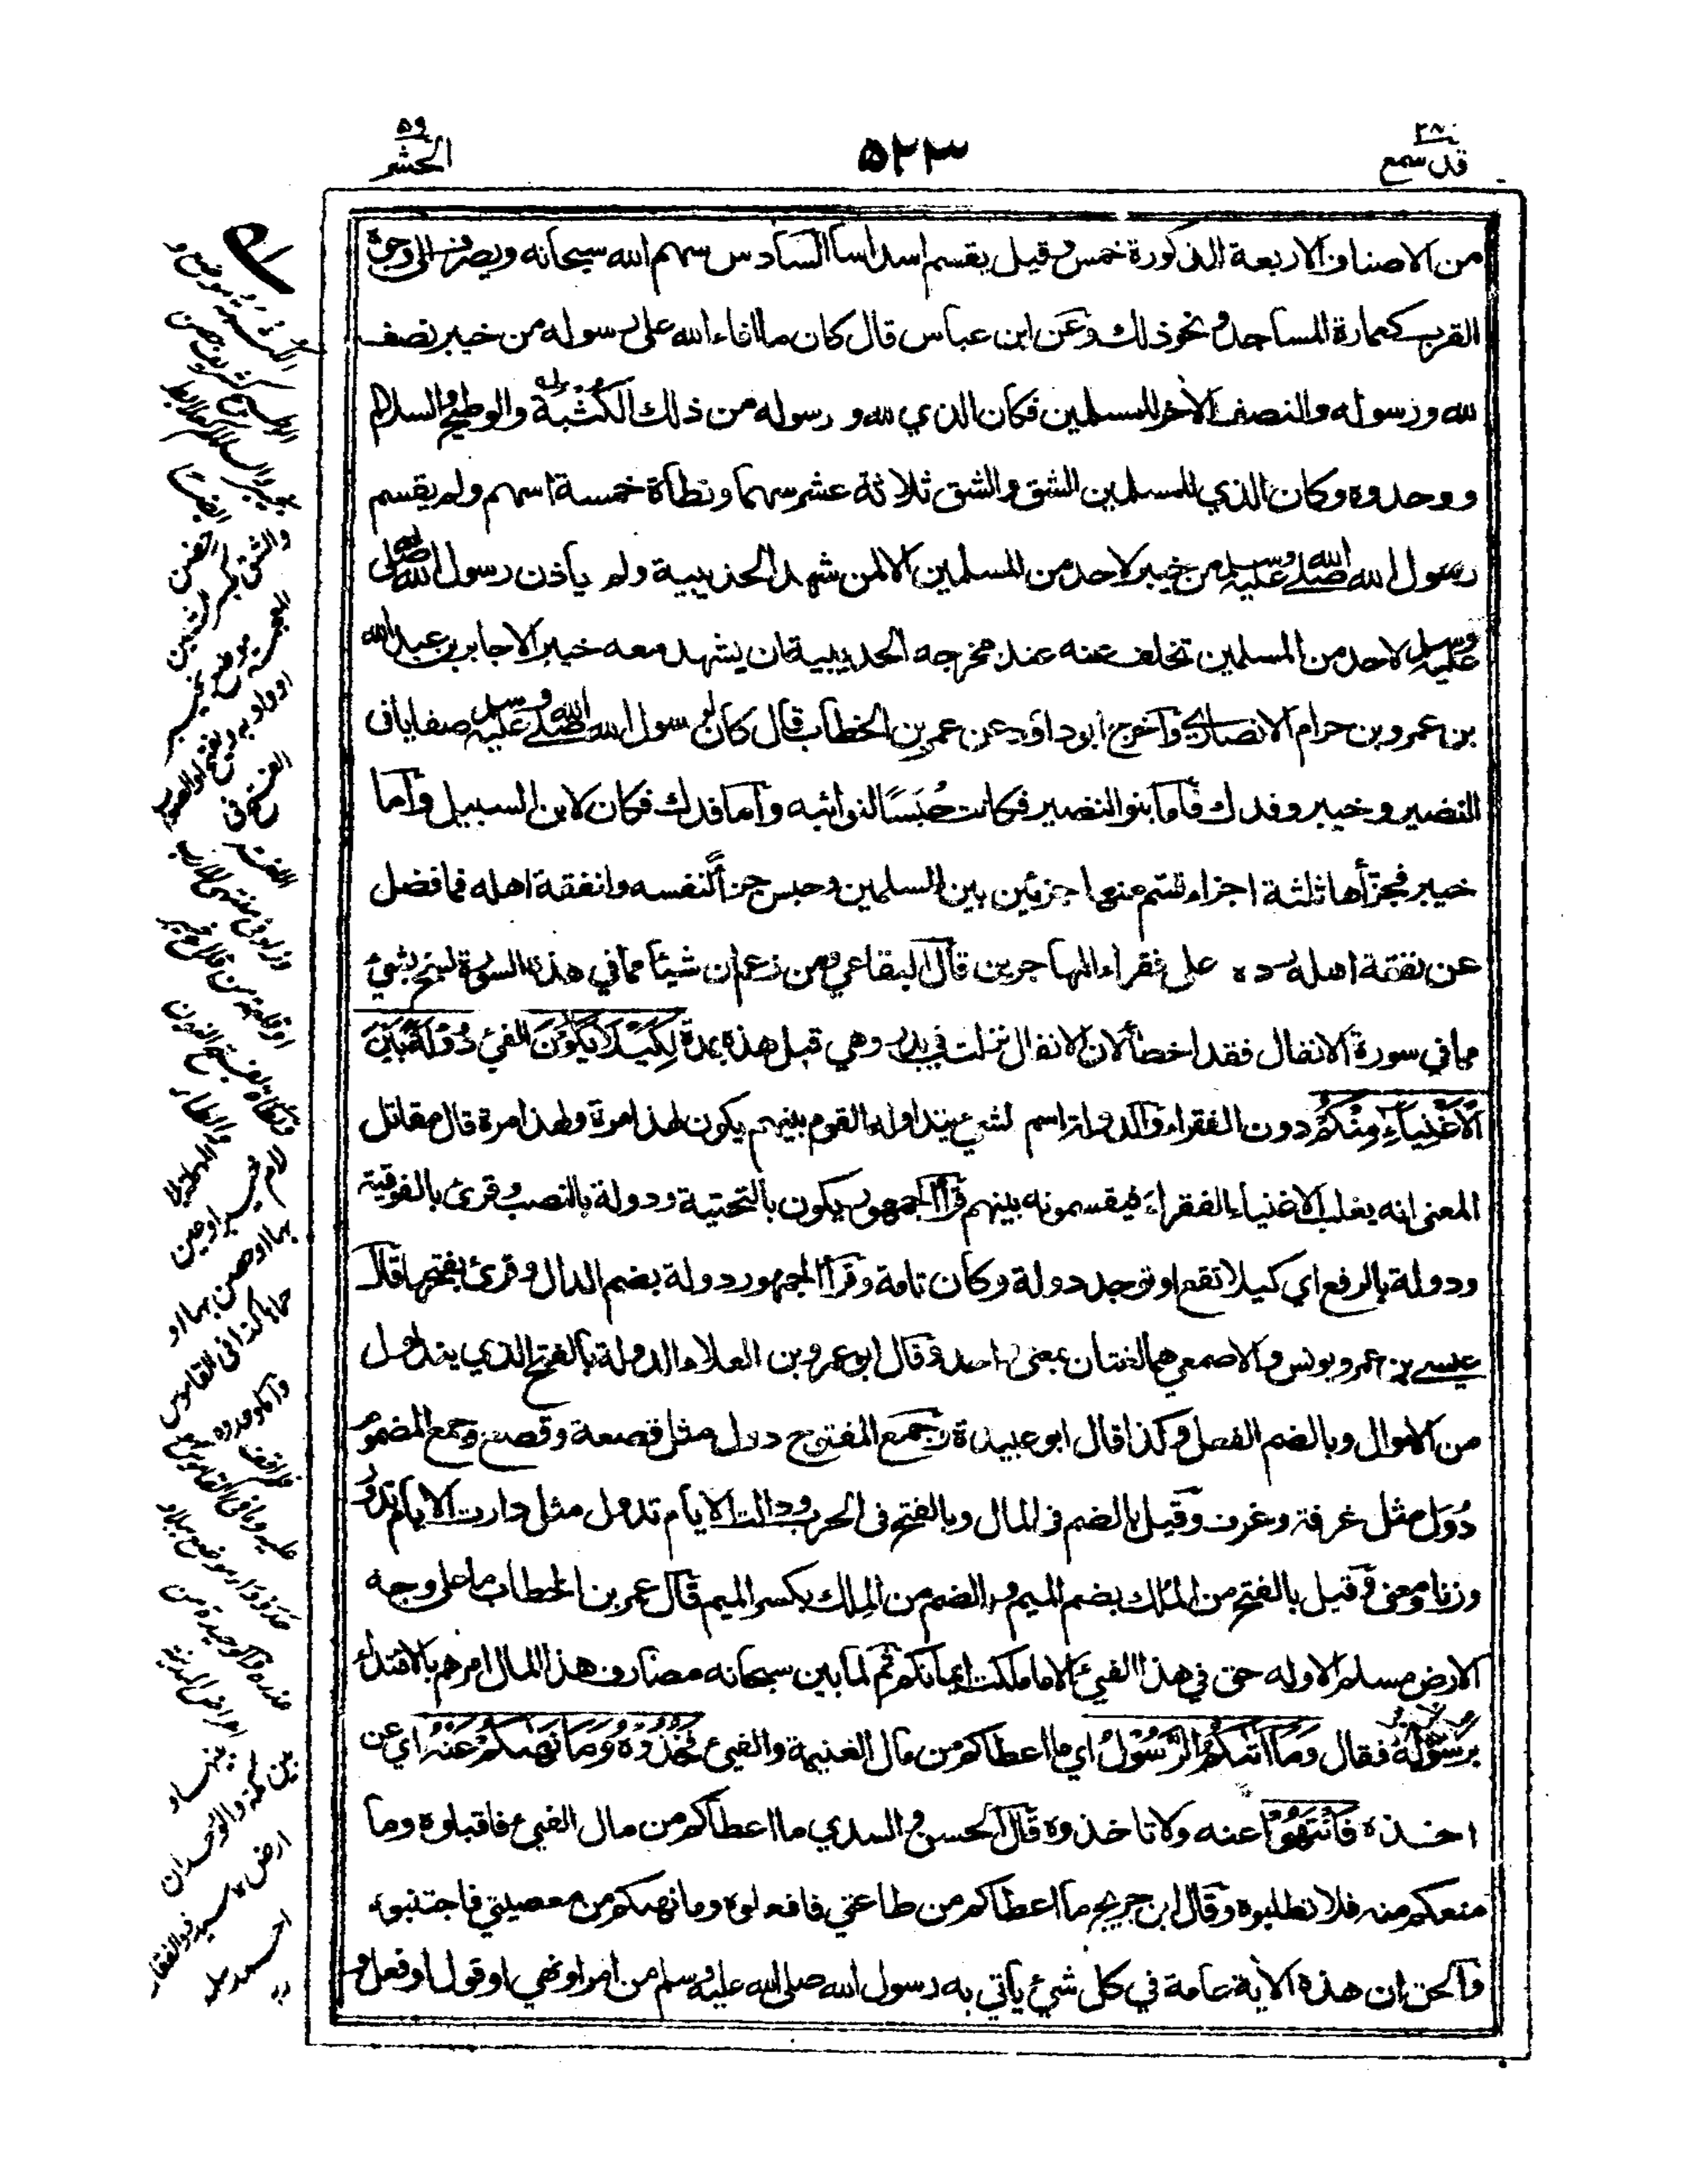 قد سمع ٢٨
٥٢٣
الحشر ٥٩
من الاصناف الاربعة المذكورة خمس وقيل يقسم اسداسا السادس سهم الله سبحانه ويصرف الى وجوه
القرب كعمارة المساجد ونحو ذلك وعن ابن عباس قال كان ما افاء الله على رسوله من خيبر نصف
لله ورسوله والنصف الآخر للمسلمين فكان الذي لله ورسوله من ذلك الكثيبة والوطيح والسلالم
ووحدوه وكان الذي للمسلمين الشق والشق ثلاثة عشر سهما ونطاة خمسة اسهم ولم يقسم
رسول الله صلى الله عليه وسلم من خيبر لاحد من المسلمين الا لمن شهد الحديبية ولم ياذن رسول الله صلى الله
عليه وسلم لاحد من المسلمين تخلف عنه عند مخرجه الحديبية ان يشهد معه خيبر الا جابر بن عبد الله
بن عمرو بن حرام الانصاري وآخرج ابو داود عن عمر بن الخطاب قال كان لرسول الله صلى الله عليه وسلم صفايا في
النضير وخيبر وفدك فاما بنو النضير فكانت حُبَسًا لنوائبه وآما فدك فكان لابن السبيل وآما
خيبر فجزأها ثلثة اجزاء قسم منها جزئين بين المسلمين وحبس جزأً لنفسه ولنفقة اهله فما فضل
عن نفقة اهله رده على فقراء المهاجرين قال البقاعي ومن زعم ان شيئا مما في هذه السورة نسخ بشيء
مما في سورة الانفال فقد اخطأ لان الانفال نزلت في بدر وهي قبل هذه بمدة لِكَيْلَا يَكُوْنَ الفيء دُوْلَةً بَيْنَ
الْاَغْنِيَاءِ مِنْكُمْ دون الفقراء والدولة اسم لشيء يتداوله القوم بينهم يكون لهذا مرة ولهذا مرة قال مقاتل
المعنى انه يغلب الاغنياء الفقراء فيقسمونه بينهم قرأ الجمهور يكون بالتحتية ودولة بالنصب وقرئ بالفوقية
ودولة بالرفع اي كيلا تقع او توجد دولة وكان تامة وقرأ الجمهور دولة بضم الدال وقرئ بفتحها قال
عيسى بن عمر ويونس والاصمعي هما لغتان بمعنى واحد وقال ابو عمرو بن العلاء الدولة بالفتح الذي يتداول
من الاموال وبالضم الفعل وكذا قال ابو عبيدة وجمع المفتوح دول مثل قصعة وقصع وجمع المضموم
دُوَل مثل غرفة وغرف وقيل بالضم في المال وبالفتح في الحرب ودالت الايام تدول مثل دارت الايام تدور
وزنا ومعنى وقيل بالفتح من المُلك بضم الميم وبالضم من المِلك بكسر الميم قال عمر بن الخطاب ما على وجه
الارض مسلم الا وله حق في هذا الفيء الا ما ملكت ايمانكم ثم لما بين سبحانه مصارف هذا المال امرهم بالاقتداء
برسوله فقال وَمَا اٰتٰىكُمُ الرَّسُوْلُ اي ما اعطاكم من مال الغنيمة والفيء فَخُذُوْهُ وَمَا نَهٰىكُمْ عَنْهُ اي عن
اخذه فَانْتَهُوْا عنه ولا تاخذوه قال الحسن والسدي ما اعطاكم من مال الفيء فاقبلوه وما
منعكم منه فلا تطلبوه وقال ابن جريج ما اعطاكم من طاعتي فافعلوه وما نهىكم من معصيتي فاجتنبوه
والحق ان هذه الآية عامة في كل شيء يأتي به رسول الله صلى الله عليه وسلم من امر او نهي او قول او فعل و